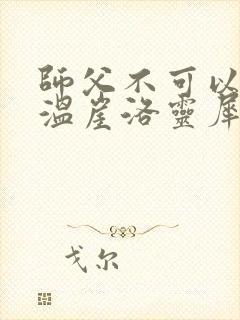 師父不可以
溫崖洛靈犀
戈尔